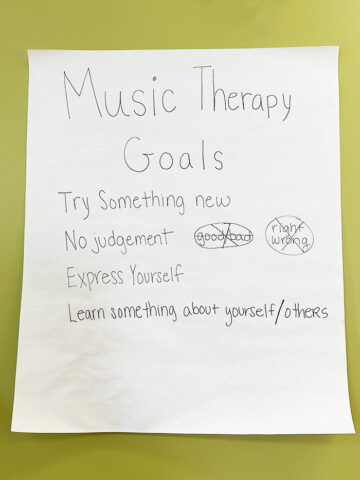 Music Therapy
Goals
Try Something new
No judgement good/bad right wrong
Express Yourself
Learn something about yourself/others